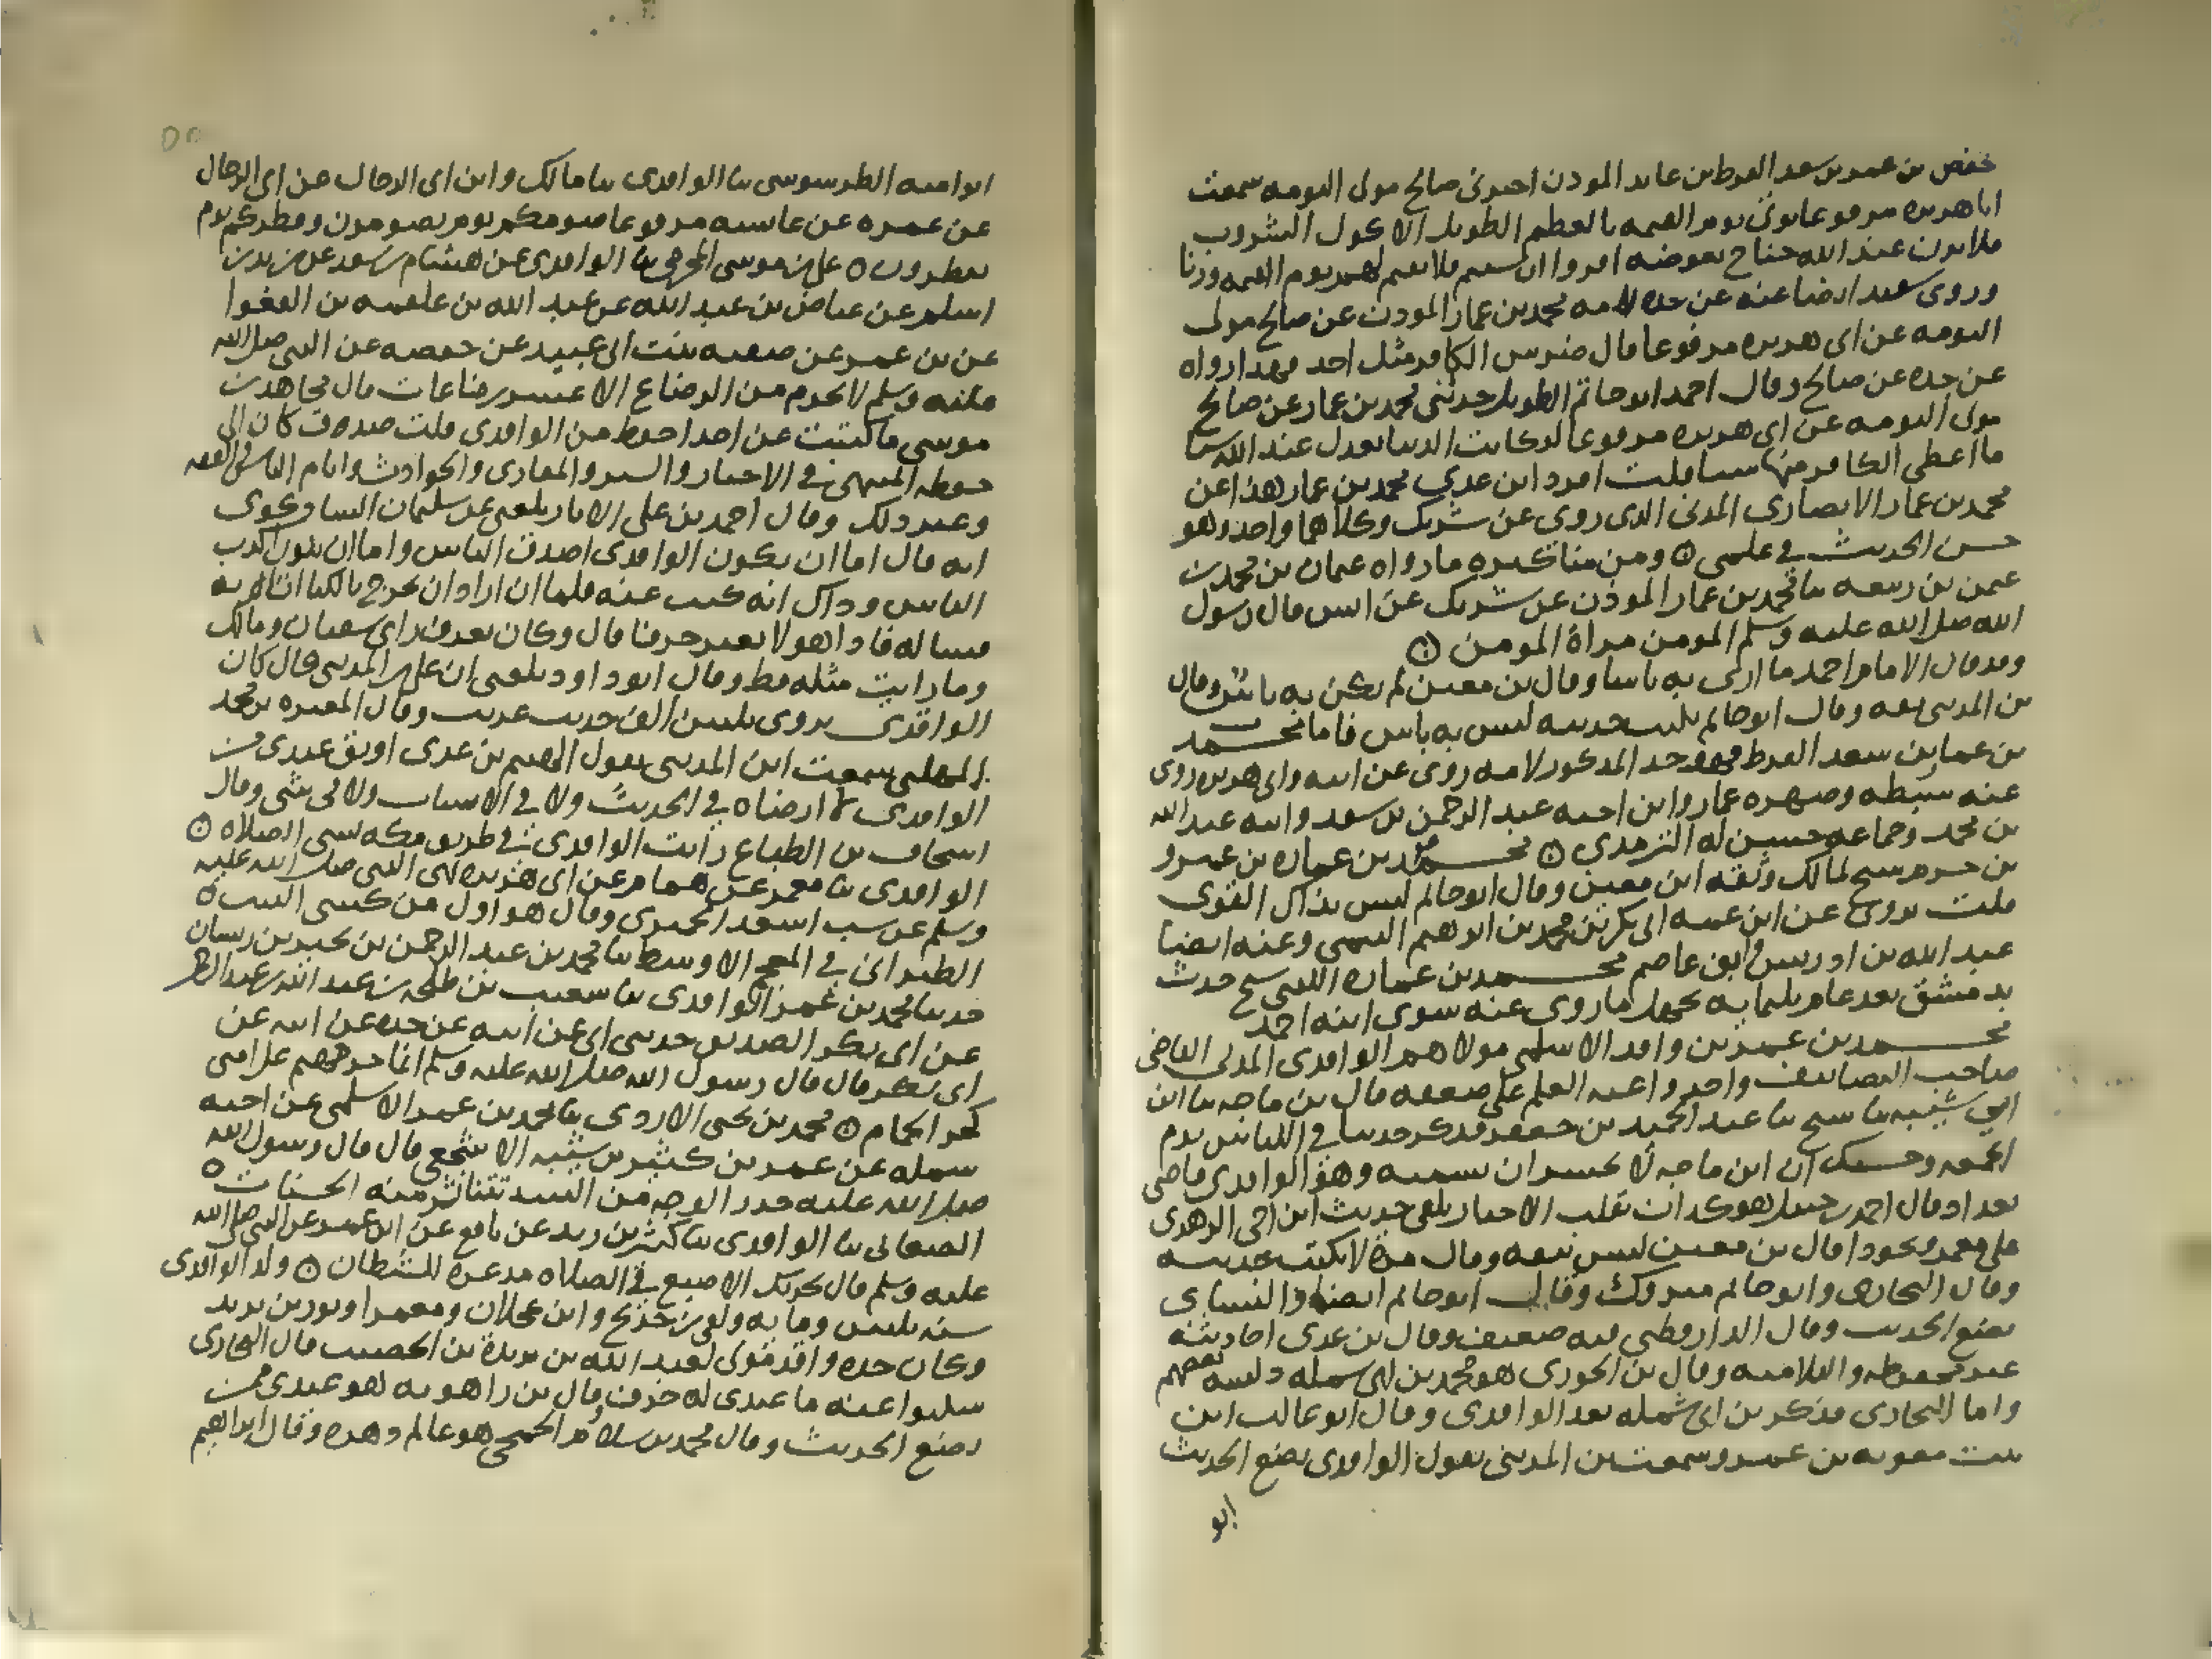 حفص بن عمر بن سعد القرط بن عايد المودن اخبرني صالح مولى التومه سمعت
ابا هريره مرفوعا يوتى يوم القيمه بالعظيم الطويل الاكول الشروب
فلا يزن عند الله جناح بعوضه اقروا ان سيم فلا نقيم لهم يوم القيمه وزنا
وروى سعد ايضا عنه عن جده لامه محمد بن عمار المودن عن صالح مولى
التومه عن ابي هريره مرفوعا قال ضرس الكافر مثل احد فهدا رواه
عن جده عن صالح وقال احمد ابو حاتم الطويل حدثني محمد بن عمار عن صالح
مولى التومه عن ابي هريره مرفوعا لو كانت الدنيا تعدل عند الله شيا
ما اعطى الكافر منها شيا قلت افرد ابن عدي محمد بن عمار هذا عن
محمد بن عمار الانصاري المدني الدي روى عن شريك وكلاهما واحد وهو
حسن الحديث في علمي ۞ ومن مناكيره ما رواه عثمان بن محمد بن
عثمن بن ربيعه ثنا محمد بن عمار المؤذن عن شريك عن انس قال رسول
الله صلى الله عليه وسلم المومن مراة المومن ۞
وقد قال الامام احمد ما ارى به باسا وقال بن معين لم يكن به باس وقال
بن المديني ثقه وقال ابو حاتم يكتب حديثه ليس به باس فاما محمد
بن عمار بن سعد القرط فهو جد المذكور لامه روى عن ابيه وابي هريره روى
عنه سبطه وصهره عمار وابن اخيه عبد الرحمن بن سعد وابنه عبد الله
بن محمد وجماعه حسن له الترمدي ۞ محمد بن عماره بن عمرو
بن حزم شيخ لمالك وثقه ابن معين وقال ابو حاتم ليس بذاك القوي
قلت يروي عن ابن عمه ابي بكر بن محمد بن ابرهيم التيمي وعنه ايضا
عبد الله بن ادريس وابو عاصم محمد بن عماره الليثي شيخ حدث
بدمشق بعد عام ثلثمايه مجهول ما روى عنه سوى ابنه احمد
محمد بن عمر بن واقد الاسلمي مولاهم الواقدي المدني القاضي
صاحب التصانيف واحد اوعيه العلم على ضعفه قال بن ماجه ثنا ابن
ابي شيبه ثنا شيخ ثنا عبد الحميد بن جعفر فذكر حديثا في اللباس يوم
الجمعه وحسبك ان ابن ماجه لا يجسر ان يسميه وهو الواقدي قاضي
بغداد قال احمد بن حنبل هو كذاب يقلب الاحاديث يلقي حديث ابن اخي الزهري
على معمر ونحو ذا قال بن معين ليس بثقه وقال مرة لا يكتب حديثه
وقال البخاري وابو حاتم متروك وقال ابو حاتم ايضا والنساي
يضع الحديث وقال الدارقطني فيه ضعف وقال بن عدي احاديثه
غير محفوظه والبلا منه وقال بن الجوزي هو محمد بن ابي شمله دلسه بعضهم
واما البخاري فذكر بن ابي شمله بعد الواقدي وقال ابو غالب ابن
بنت معويه بن عمرو سمعت بن المديني يقول الواقدي يضع الحديث
ابو
ابو اميه الطرسوسي ثنا الواقدي ثنا مالك وابن ابي الرجال عن ابي الرجال
عن عمره عن عايشه مرفوعا صومكم يوم تصومون وفطركم يوم
تفطرون ۞ علي بن موسى ثنا الواقدي عن هشام بن سعد عن زيد بن
اسلم عن عياض بن عبد الله عن عبد الله بن علقمه بن الفغوا
عن بن عمر عن صفيه بنت ابي عبيد عن حفصه عن النبي صلى الله
عليه وسلم لا يحرم من الرضاع الا عشر رضاعات قال مجاهد بن
موسى ما كتبت عن احد احفظ من الواقدي قلت صدق كان الى
حفظه المنتهى في الاخبار والسير والمغازي والحوادث وايام الناس والفقه
وغير دلك وقال احمد بن علي الابار بلغني عن سليمان الشادكوني
انه قال اما ان يكون الواقدي اصدق الناس واما ان يكون اكدب
الناس وداك انه كتب عنه فلما ان اراد ان يخرج بالكتاب اتاه به
فساله فادا هو لا يغير حرفا قال وكان يعرف راي سفيان ومالك
وما رايت مثله قط وقال ابو داود بلغني ان علي المديني قال كان
الواقدي يروي ثلثين الف حديث غريب وقال المغيره بن محمد
المهلبي سمعت ابن المديني يقول الهيثم بن عدي اوثق عندي من
الواقدي لا ارضاه في الحديث ولا في الانساب ولا في شي وقال
اسحاق بن الطباع رايت الواقدي في طريق مكه يسي الصلاه ۞
الواقدي ثنا معمر عن همام عن ابي هريره نهى النبي صلى الله عليه
وسلم عن سب اسعد الحميري وقال هو اول من كسى البيت ۞
الطبراني في المعجم الاوسط ثنا محمد بن عبد الرحمن بن بحير بن ريسان
حدثنا محمد بن عمر الواقدي ثنا شعيب بن طلحه بن عبد الله بن عبد الرحمن
عن ابي بكر الصديق حدثني ابي عن ابيه عن جده عن ابيه عن
ابي بكر قال قال رسول الله صلى الله عليه وسلم انما حر جهنم على امتي
كحر الحمام ۞ محمد بن يحيى الازدي ثنا محمد بن عمر الاسلمي عن اخيه
شمله عن عمر بن كثير بن شيبه الاشجعي قال قال رسول الله
صلى الله عليه خدر الوجه من النبيذ تتناثر منه الحسنات ۞
الصغاني ثنا الواقدي ثنا كثير بن زيد عن نافع عن ابن عمر عن النبي صلى الله
عليه وسلم قال تحريك الاصبع في الصلاه مذعرة للشيطان ۞ ولد الواقدي
سنه ثلثين ومايه ولقي بن جريج وابن عجلان ومعمرا وثور بن يزيد
وكان جده واقد مولى لعبد الله بن بريدة بن الحصيب قال البخاري
سكتوا عنه ما عندي له حرف وقال بن راهويه هو عندي ممن
يضع الحديث وقال محمد بن سلام الجمحي هو عالم دهره وقال ابراهيم